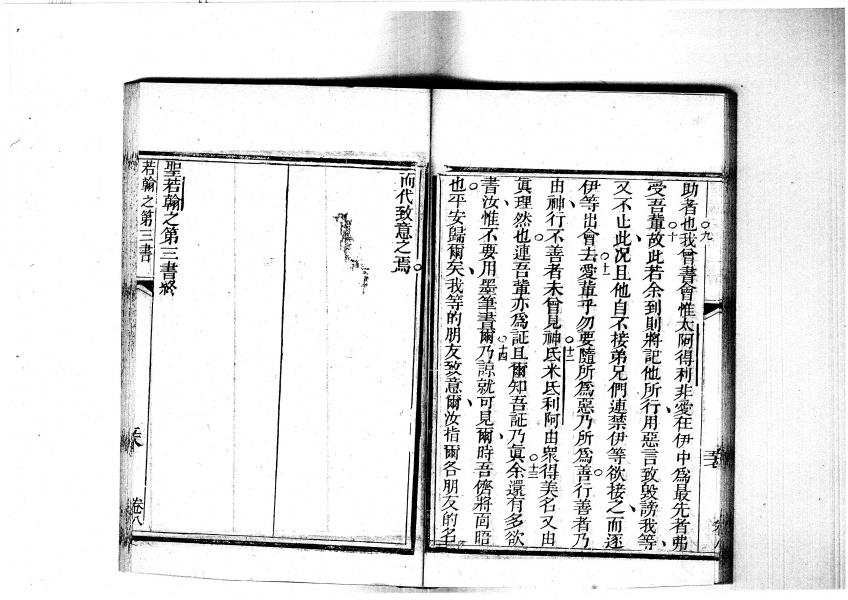 助者也○九我曾書會惟太阿得利非愛在伊中為最先者弗
受吾輩○十故此若余到則將記他所行用惡言致毀謗我等、
又不止此、况且他自不接弟兄們連禁伊等欲接之、而逐
伊等出會去、○十一愛輩乎勿要隨所為惡乃所為善○行善者乃
由神、行不善者未曾見神○十二氐米氐利阿由衆得美名又由
真理然也○連吾輩亦為証且爾知吾証乃真○十三余還有多欲
書汝、惟不要用墨筆書爾○十四乃諒就可見爾、時吾儕將面晤
也○平安歸爾矣、我等的朋友致意爾、汝指爾各朋友的名
而代致意之焉○
聖若翰之第三書終
若翰之第三書
卷八